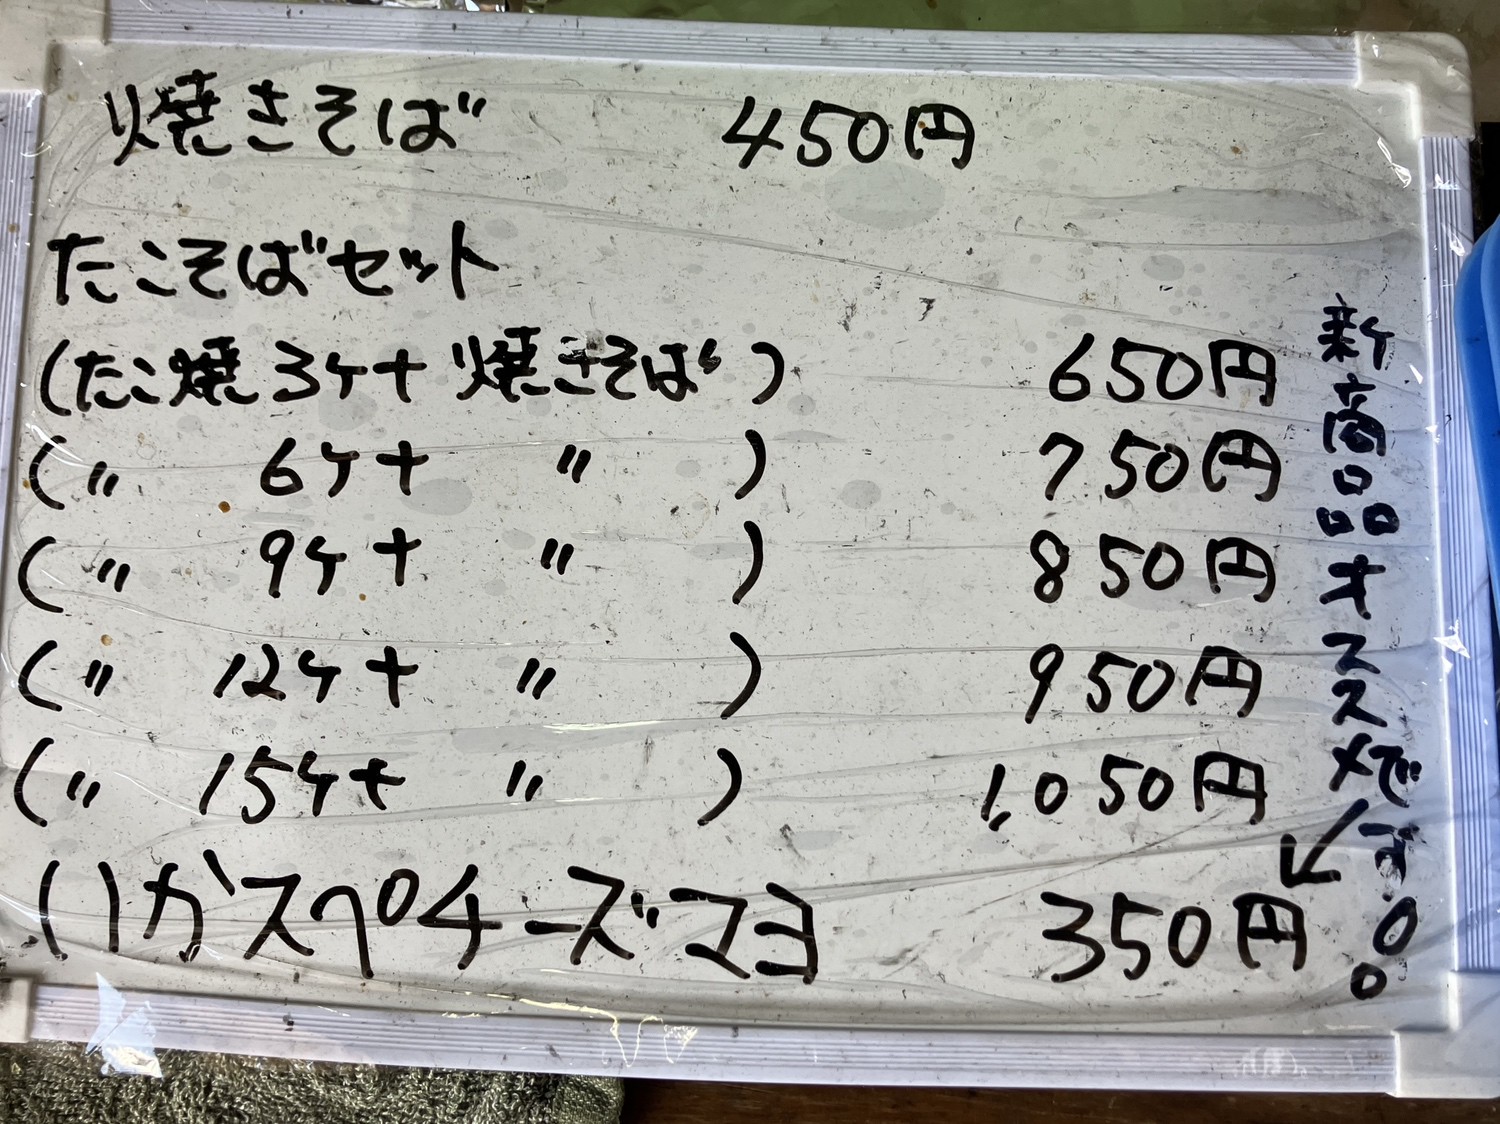 焼きそば 450円
たこそばセット
(たこ焼3ケ+焼きそば) 650円
(〃 6ケ+ 〃 ) 750円
(〃 9ケ+ 〃 ) 850円
(〃 12ケ+ 〃 ) 950円
(〃 15ケ+ 〃 ) 1,050円
いかスペチーズマヨ 350円
新商品オススメです。。